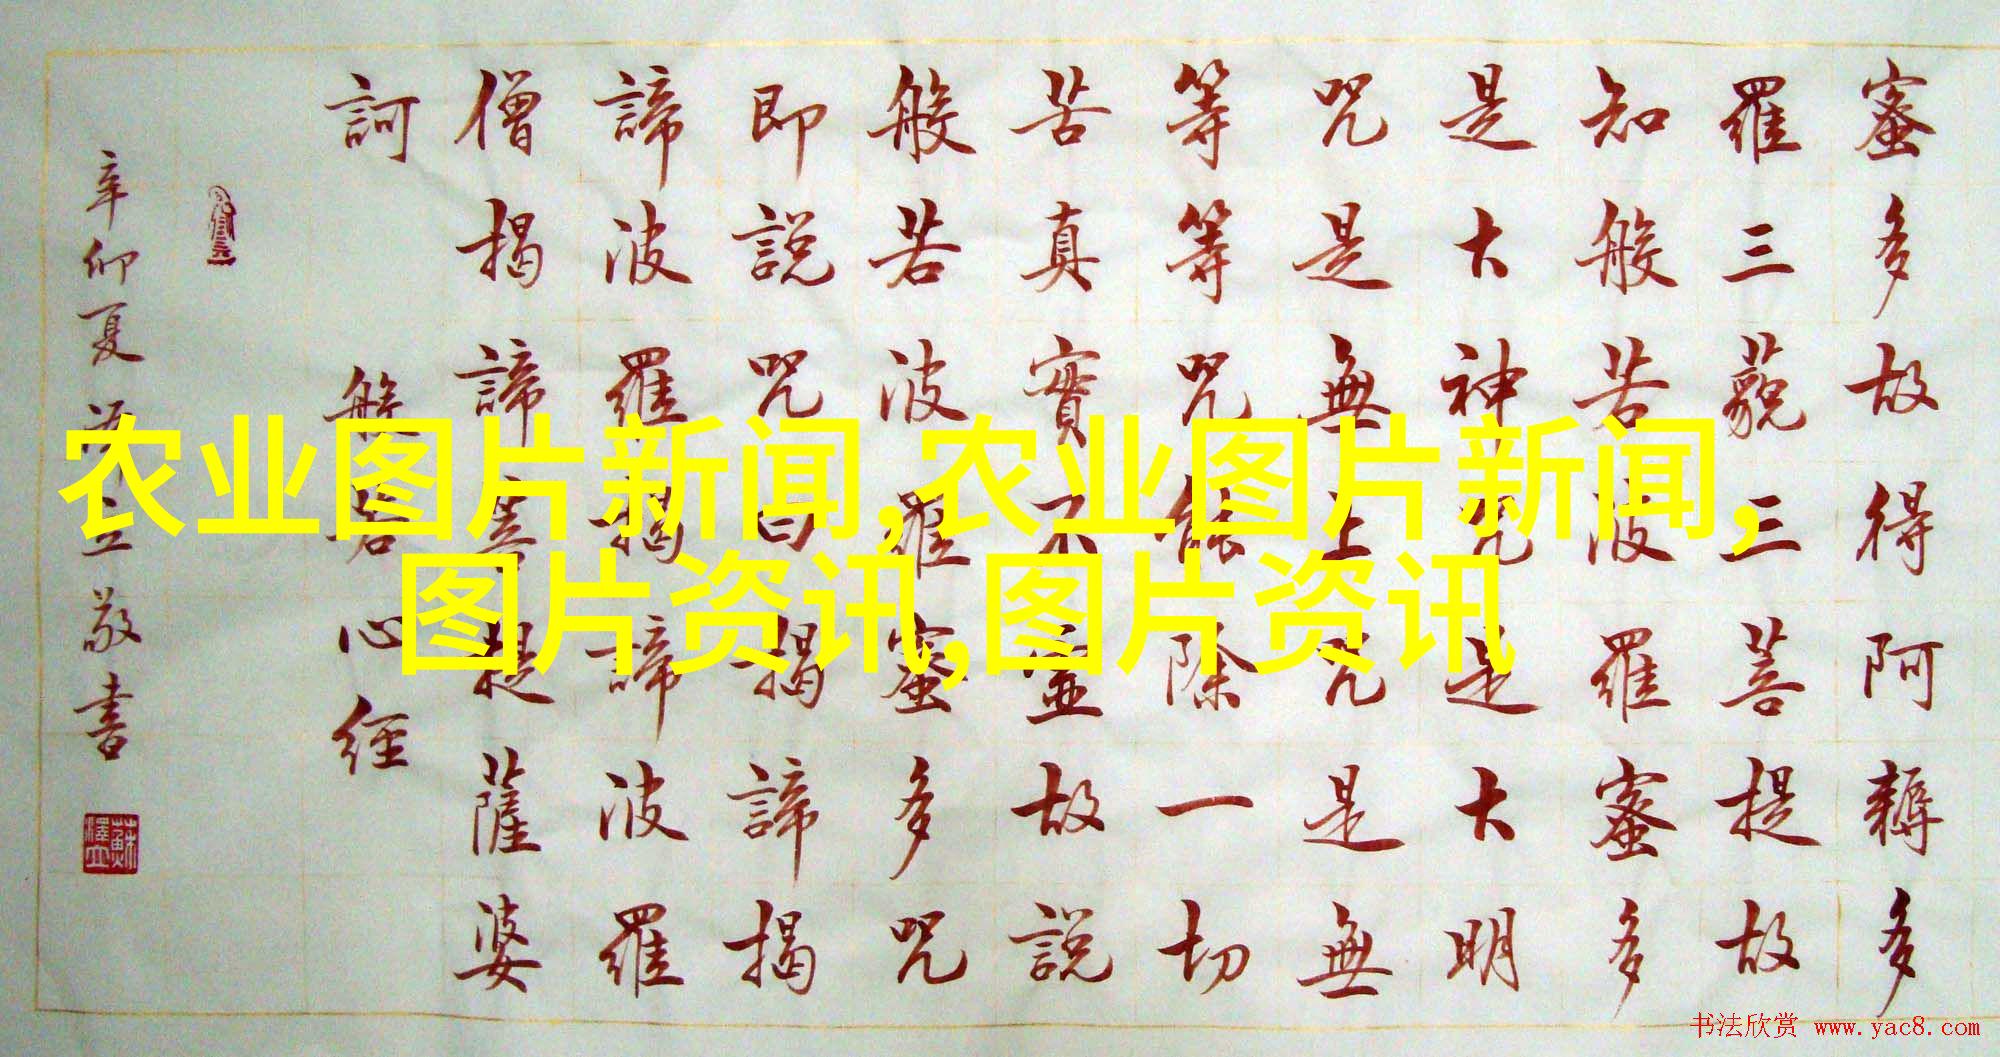 蜜多故得阿耨多
羅三藐三菩提故
知般若波羅蜜多
是大神咒是大明
咒是無上咒是無
等等咒能除一切
苦真實不虛故說
般若波羅蜜多咒
即說咒曰揭諦揭
諦波羅揭諦波羅
僧揭諦菩提薩婆
訶 般若心経
辛卯夏立敬書
农业图片新闻,农业图片新闻,
图片资讯,图片资讯
书法欣赏 www.yac8.com